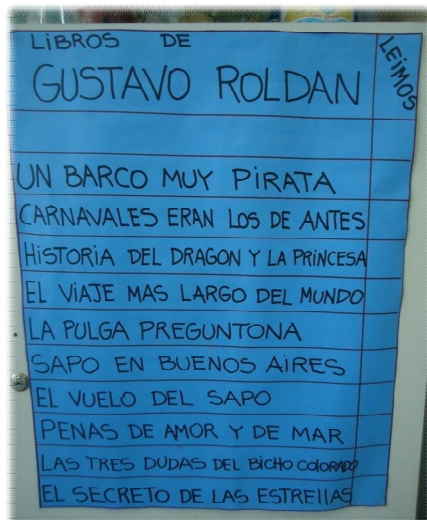 LiBROS DE
LEiMOS
GUSTAVO ROLDAN
UN BARCO MUY PiRATA
CARNAVALES ERAN LOS DE ANTES
HiSTORiA DEL DRAGON Y LA PRiNCESA
EL ViAJE MAS LARGO DEL MUNDO
LA PULGA PREGUNTONA
SAPO EN BUENOS AiRES
EL VUELO DEL SAPO
PENAS DE AMOR Y DE MAR
LAS TRES DUDAS DEL BiCHO COLORADO
EL SECRETO DE LAS ESTRELLAS